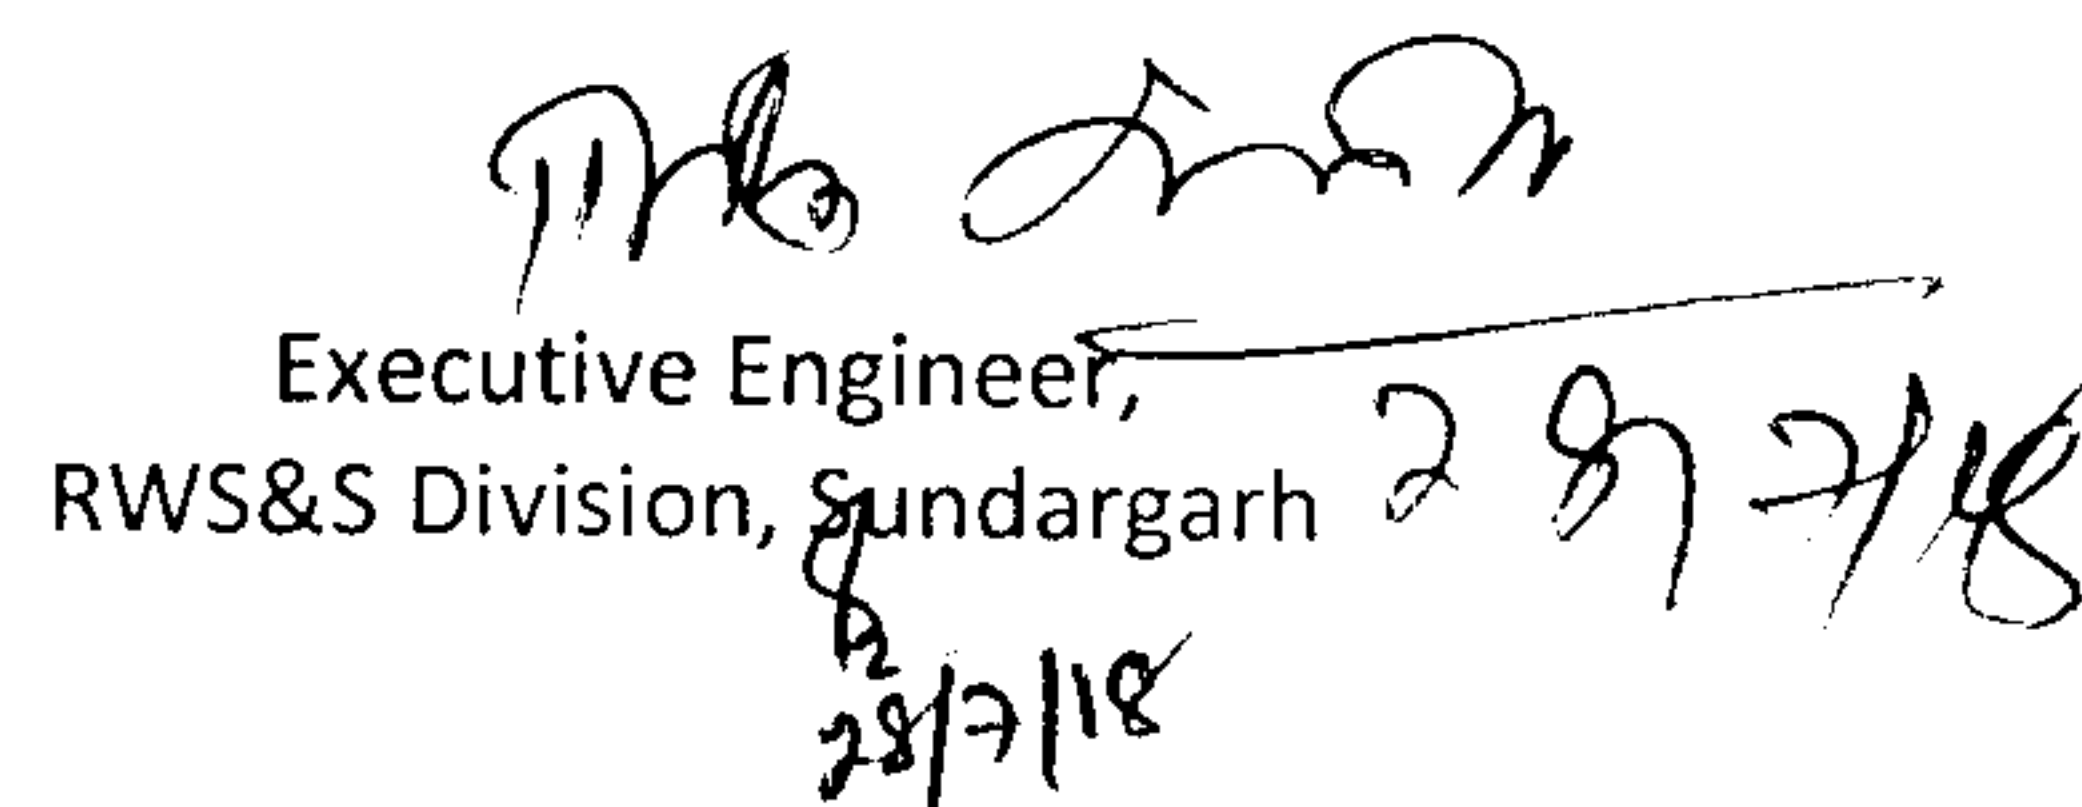 Executive Engineer,
RWS&S Division, Sundargarh
28/7/18
28/7/18